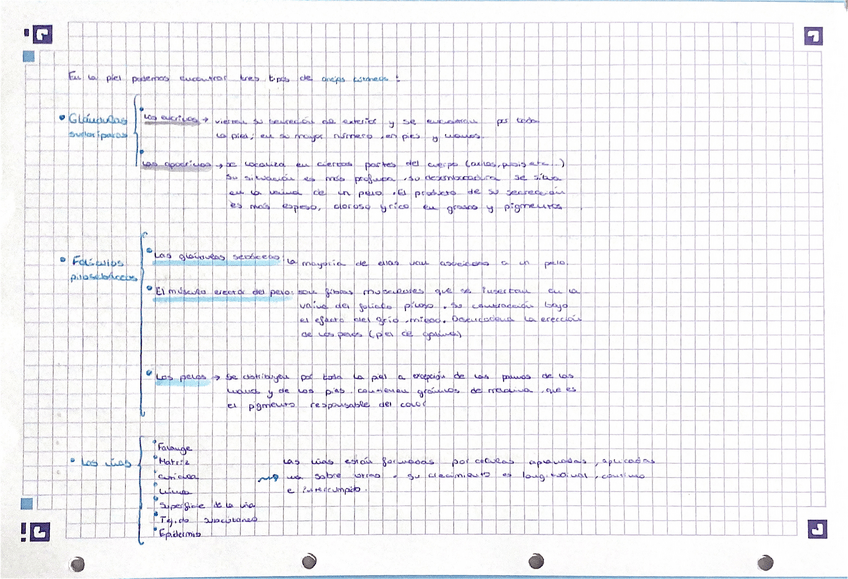 En la piel podemos encontrar tres tipos de anejos cutáneos:
• Glándulas sudoríparas
• Las ecrinas → vierten su secreción al exterior y se encuentran por toda
la piel; en su mayor número, en pies y manos.
• Las apocrinas → se localiza en ciertas partes del cuerpo (axilas, pubis etc...)
Su situación es más profunda, su desembocadura se sitúa
en la vaina de un pelo. El producto de su secreción
es más espeso, oloroso y rico en grasas y pigmentos
• Folículos pilosebáceos
• Las glándulas sebáceas: la mayoría de ellas van asociadas a un pelo.
• El músculo erector del pelo: son fibras musculares que se insertan en la
vaina del folículo piloso. Su contracción bajo
el efecto del frío, miedo. Desencadena la erección
de los pelos (piel de gallina)
• Los pelos → Se distribuyen por toda la piel a excepción de las palmas de las
manos y de los pies. contienen gránulos de melanina, que es
el pigmento responsable del color
• Las uñas
• Falange
• Matriz
• Cutícula
• Lúnula
• Superficie de la uña
• Tejido subcutáneo
• Epidermis
Las uñas están formadas por células aplanadas, aplicadas
una sobre otra. Su crecimiento es longitudinal, continuo
e ininterrumpido.